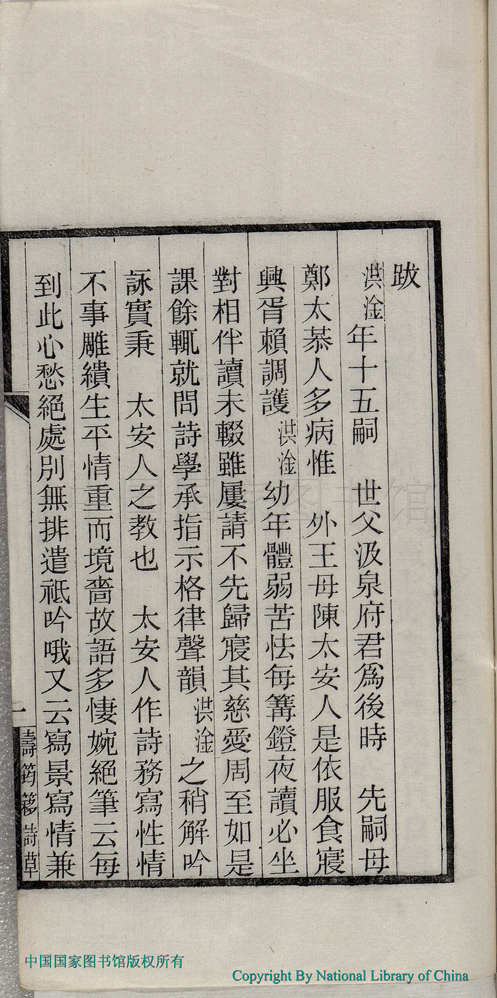 跋
洪淦年十五嗣　世父汲泉府君爲後時　先嗣母
鄭太恭人多病惟　外王母陳太安人是依服食寢
興胥賴調護洪淦幼年體弱苦怯每篝鐙夜讀必坐
對相伴讀未輟雖屢請不先歸寢其慈愛周至如是
課餘輒就問詩學承指示格律聲韻洪淦之稍解吟
詠實秉　太安人之教也　太安人作詩務寫性情
不事雕繢生平情重而境嗇故語多悽婉絕筆云每
到此心愁絕處別無排遣祇吟哦又云寫景寫情兼
一
壽筠簃詩草
中国国家图书馆版权所有
Copyright By National Library of China